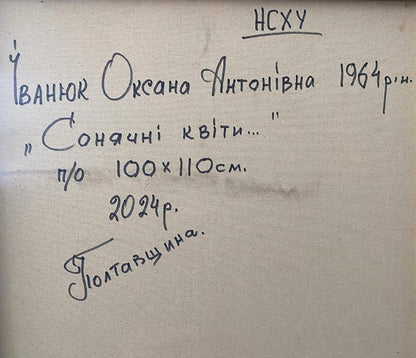 НСХУ
Іванюк Оксана Антонівна 1964 р.н.
„Сонячні квіти..."
п/о 100х110см.
2024р.
Полтавщина.